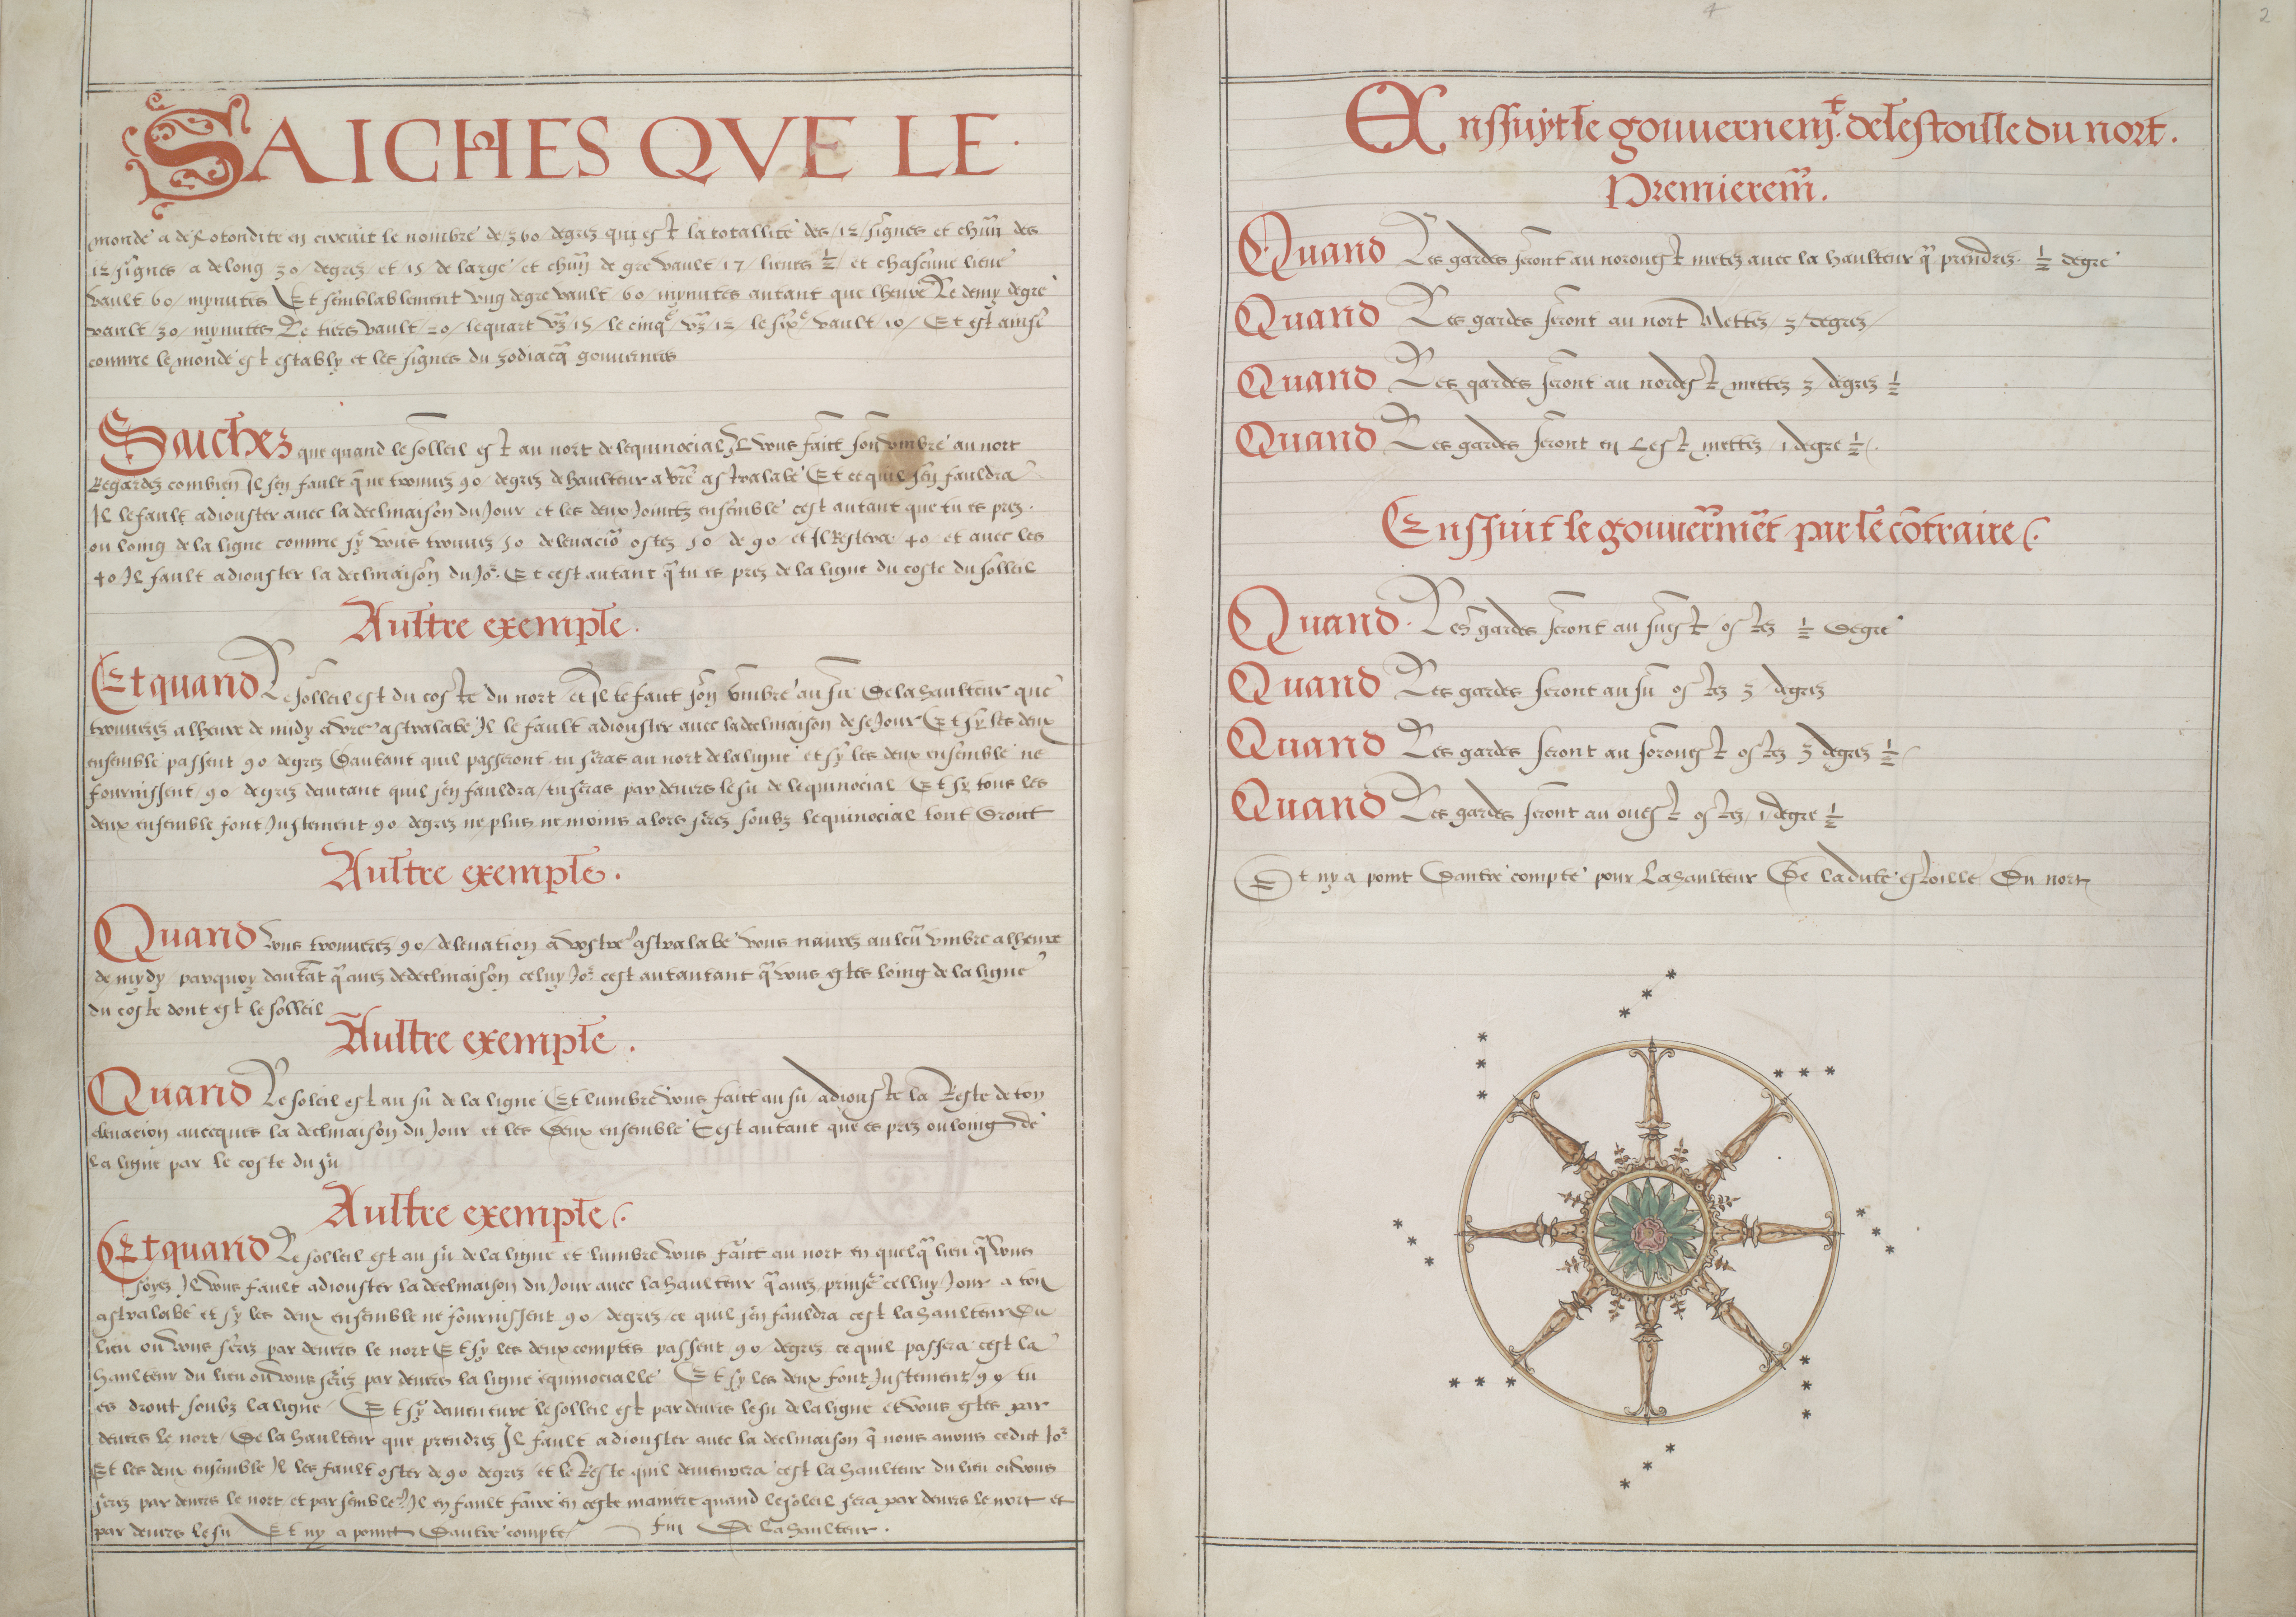 SAICHES QVE LE
monde a de Rotondite en circuit le nombre de 360 degrez qui est la totallite des 12 signes et chũn des
12 signes a de long 30 degrez et 15 de large et chũn degre vault 17 lieues ½ et chascune lieue
vault 60 mynutes Et semblablement vng degre vault 60 mynutes autant que lheure Le demy degre
vault 30 mynutes Le tiers vault 20 le quart vault 15 le cinqe 12 le sixe vault 10 Et est ainsi
comme le monde est estably et les signes du zodiacq gouuernees
Saiches que quand le solleil est au nort de lequinocial Il vous faict son vmbre au nort
Regardez combien Il sen fault q̃ ne trouuez 90 degrez de haulteur a vr̃e astralabe Et ce quil sen fauldra
Il le fault adiouster auec la declinaison du Jour et les deux Joinctz ensemble cest autant que tu es prez
ou loing de la ligne comme sy vous trouuez 50 deleuaciõ ostez 50 de 90 et Il Restera 40 et auec les
40 Il fault adiouster la declinaison du Jor. Et cest autant q̃ tu es prez de la ligne du coste du solleil
Aultre exemple.
Et quand Le solleil est du coste du nort et Il te faict son vmbre au su De la haulteur que
trouuerez a lheure de midy a vr̃e astralabe Il le fault adiouster auec la declinaison de se Jour Et sy les deux
ensemble passent 90 degrez Dautant quil passeront tu seras au nort de la ligne et sy les deux ensemble ne
fournissent 90 degrez dautant quil sen fauldra tu seras par deuers le su de lequinocial Et sy tous les
deux ensemble font Justement 90 degrez ne plus ne moins alors serez soubz lequinocial tout Droict
Aultre exemple.
Quand vous trouuerez 90 deleuation a vostre astralabe vous naurez aulcũ vmbre a lheure
de mydy parquoy dautãt q̃ auez de declinaison celuy Jor cest autantant q̃ vous estes loing de la ligne
du coste dont est le solleil
Aultre exemple.
Quand Le soleil est au su de la ligne Et lumbre vous faict au su adiouste la Reste de ton
eleuacion auecques la declinaison du Jour et les Deux ensemble Cest autant que es prez ou loing de
la ligne par le coste du su
Aultre exemple.
Et quand Le solleil est au su de la ligne et lumbre vous faict au nort en quelq̃ lieu q̃ vous
soyez Il vous fault adiouster la declinaison du Jour auec la haulteur q̃ auez prinse celluy Jour a ton
astralabe et sy les deux ensemble ne fournissent 90 degrez ce quil sen fauldra cest la haulteur Du
lieu ou vous serez par deuers le nort Et sy les deux comptes passent 90 degrez ce quil passera cest la
haulteur du lieu ou vous serez par deuers la ligne equinocialle Et sy les deux font Justement 90 tu
es droict soubz la ligne Et sy dauenture le solleil est par deuers le su de la ligne et vous estes par
deuers le nort De la haulteur que prendrez Il fault adiouster auec la declinaison q̃ nous auons cedict Jor
Et les deux ensemble Il les fault oster de 90 degrez et le Reste quil demeurera cest la haulteur du lieu ou vous
serez par deuers le nort et par semble Il en fault faire en ceste maniere quand le soleil sera par deuers le nort et
par deuers le su Et ny a point Dautre compte fin De La haulteur.
4
2
Ensuyt le gouuernemt. de lestoille du nort.
Premierem̃.
Quand Les gardes seront au norouest metez auec la haulteur q̃ prendrez ½ degre
Quand Les gardes seront au nort Mettez 3 degrez
Quand Les gardes seront au nordest mettez 3 degrez ½
Quand Les gardes seront en Lest mettez 1 degre ½
Ensuit le gouuerñmẽt par le cõtraire
Quand Les gardes seront au suest ostez ½ Degre
Quand Les gardes seront au su ostez 3 degrez
Quand Les gardes seront au sorouest ostez 3 degrez ½
Quand Les gardes seront au ouest ostez 1 degre ½
Et ny a point Dautre compte pour La haulteur De ladicte estoille Du nort